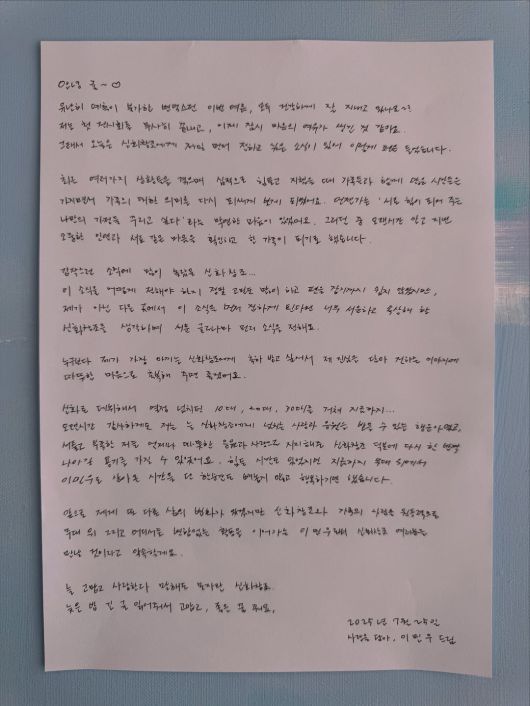 안녕 귤~♡
유난히 예측이 불가한 변덕스런 이번 여름, 모두 건강하게 잘 지내고 있나요~?
저는 첫 전시회를 무사히 끝내고, 이제 잠시 마음의 여유가 생긴 것 같아요.
그래서 오늘은 신화창조에게 제일 먼저 전하고 싶은 소식이 있어 이렇게 펜을 들었습니다.
최근 여러가지 상황들을 겪으며 심적으로 힘들고 지쳤을 때 가족들과 함께 얻은 시간을
가지면서 가족의 귀한 의미를 다시 되새기게 되었어요. 언젠가는 '서로 힘이 되어 주는
나만의 가정을 꾸리고 싶다'라는 막연한 마음이 있었어요. 그러던 중 오랜시간 알고 지낸
소중한 인연과 서로 같은 마음을 확인하고 한 가족이 되기로 했습니다.
갑작스런 소식에 많이 놀랐을 신화창조...
이 소식을 어떻게 전해야 하지 정말 고민도 많이 하고 펜을 잡기까지 쉽지 않았지만,
제가 아닌 다른 곳에서 이 소식을 먼저 접하게 된다면 너무 서운하고 속상해 할
신화창조를 생각하며 서툰 글로나마 먼저 소식을 전해요.
누구보다 제가 가장 아끼는 신화창조에게 축하 받고 싶어서 제 진심을 담아 전하는 이야기에
따뜻한 마음으로 축복해 주면 좋겠어요.
신화로 데뷔해서 열정 넘치던 10대, 20대, 30대를 거쳐 지금까지...
오랜시간 감사하게도 저는 늘 신화창조에게 넘치는 사랑과 응원을 받을 수 있는 행운아였고,
서툴고 부족한 저를 언제나 따뜻한 응원과 사랑으로 지지해준 신화창조 덕분에 다시 한 번
나아갈 용기를 가질 수 있었어요. 힘든 시간도 있었지만 지금까지 무대 위에서
이민우로 살아온 시간을 단 한순간도 빼놓지 않고 행복하기만 했습니다.
앞으로 제게 또 다른 삶의 변화가 있겠지만 신화창조와 가족의 일원을 원동력으로
무대 위 그리고 어디서든 변함없는 활동을 이어가는 이민우 신화로 여러분을
만날 것이라고 약속할게요.
늘 고맙고 사랑한다 말해도 모자란 신화창조.
늦은 밤 긴 글 읽어줘서 고맙고, 좋은 꿈 꿔요.
2025년 7월 25일
사랑을 담아, 이민우 드림